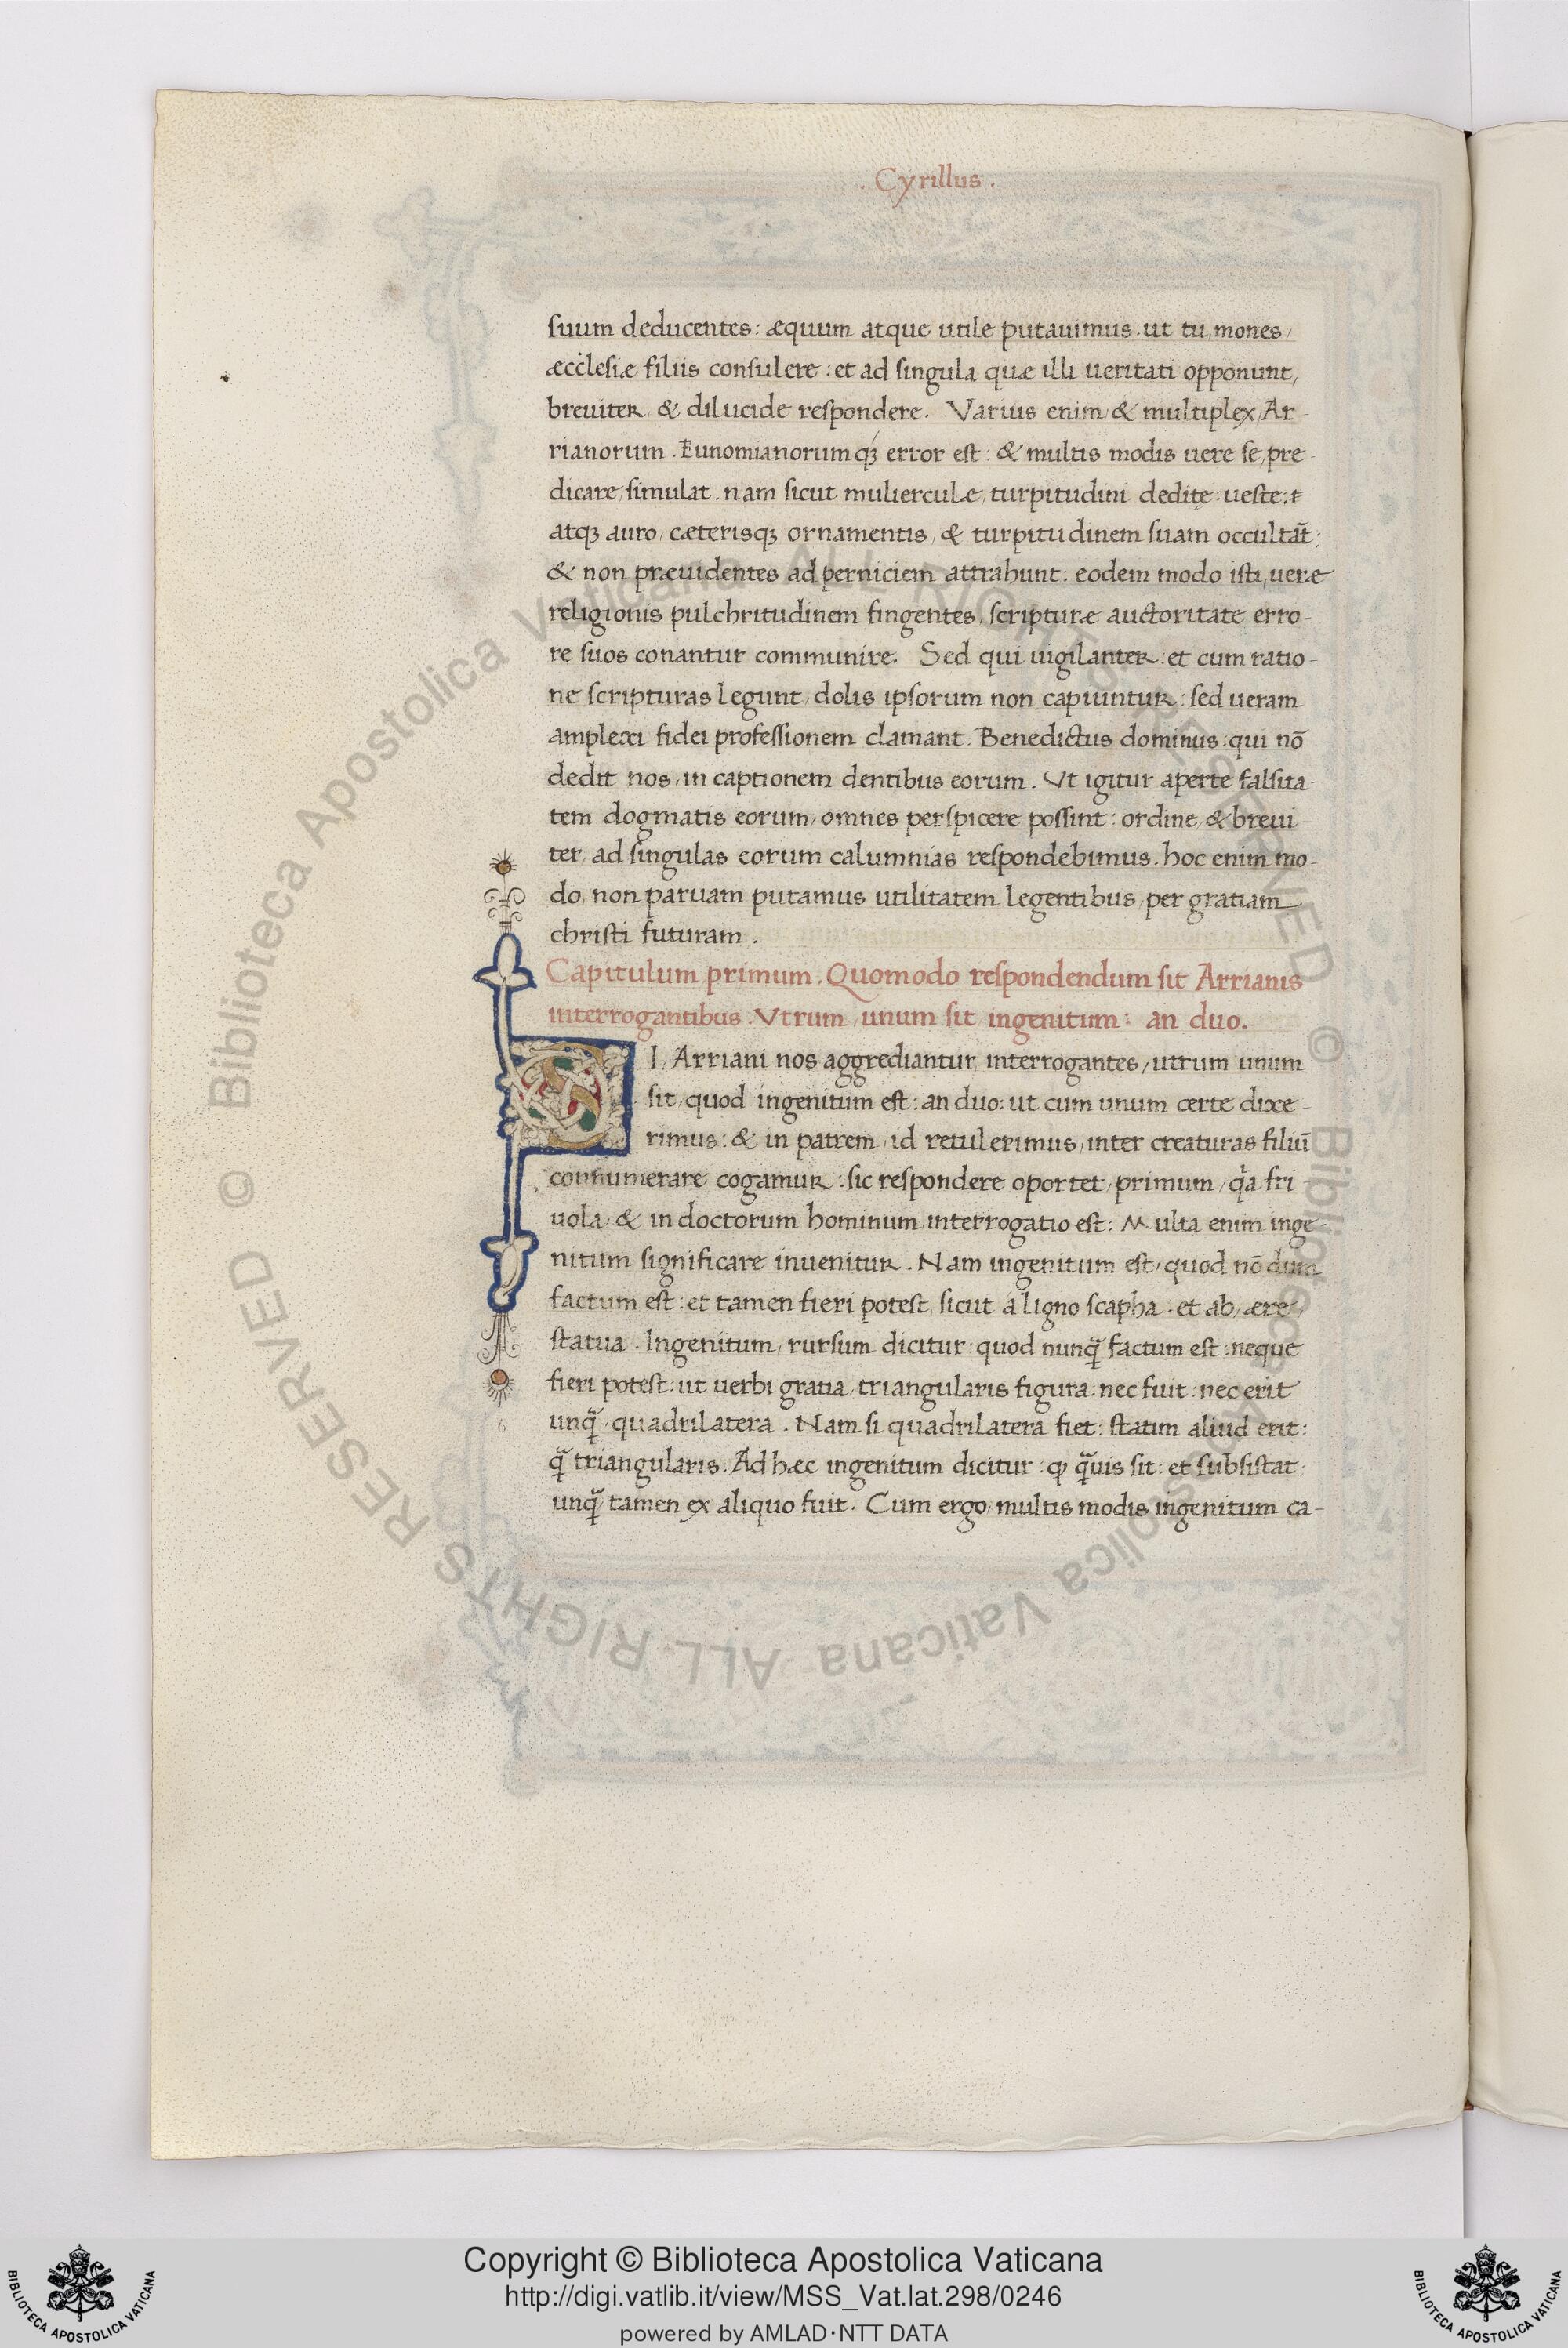 . Cyrillus .
suum deducentes: æquum atque utile putauimus. ut tu, mones,
æcclesiæ filiis consulere: et ad singula quæ illi ueritati opponunt,
breuiter, & dilucide respondere. Varius enim, & multiplex, Ar-
rianorum. Eunomianorumqꝫ error est: & multis modis uere se, pre-
dicare, simulat. nam sicut mulierculæ, turpitudini deditę: ueste:
atqꝫ auro, cæterisqꝫ ornamentis, & turpitudinem suam occultāt:
& non præuidentes ad perniciem attrahunt: eodem modo isti, ueræ
religionis pulchritudinem fingentes, scripturæ auctoritate erro-
re suos conantur communire. Sed qui uigilanter: et cum ratio-
ne scripturas legunt, dolis ipsorum non capiuntur: sed ueram
amplexi fidei professionem clamant. Benedictus dominus: qui nō
dedit nos, in captionem dentibus eorum. Vt igitur aperte falsita-
tem dogmatis eorum, omnes perspicere possint: ordine, & breui-
ter, ad singulas eorum calumnias respondebimus. hoc enim mo-
do, non paruam putamus utilitatem legentibus, per gratiam
christi futuram.
Capitulum primum. Quomodo respondendum sit Arrianis
interrogantibus. Vtrum, unum sit ingenitum: an duo.
SI, Arriani nos aggrediantur, interrogantes, utrum unum
sit, quod ingenitum est: an duo: ut cum unum certe dixe-
rimus: & in patrem, id retulerimus, inter creaturas filiū
connumerare cogamur: sic respondere oportet, primum, qͥa fri-
uola, & in doctorum hominum interrogatio est: Multa enim inge-
nitum significare inuenitur. Nam ingenitum est, quod nō dum
factum est: et tamen fieri potest, sicut a ligno scapha. et ab, ære,
statua. Ingenitum, rursum dicitur: quod nunq̄ factum est: neque
fieri potest: ut uerbi gratia, triangularis figura: nec fuit: nec erit
unq̄, quadrilatera. Nam si quadrilatera fiet: statim aliud erit:
q̄ triangularis. Ad hæc ingenitum dicitur: ꝙ q̄uis sit: et subsistat:
unq̄ tamen ex aliquo fuit. Cum ergo, multis modis ingenitum ca-
© Biblioteca Apostolica Vaticana ALL RIGHTS RESERVED © Biblioteca Apostolica Vaticana ALL RIGHTS RESERVED
Copyright © Biblioteca Apostolica Vaticana
http://digi.vatlib.it/view/MSS_Vat.lat.298/0246
powered by AMLAD·NTT DATA
BIBLIOTECA APOSTOLICA VATICANA
BIBLIOTECA APOSTOLICA VATICANA